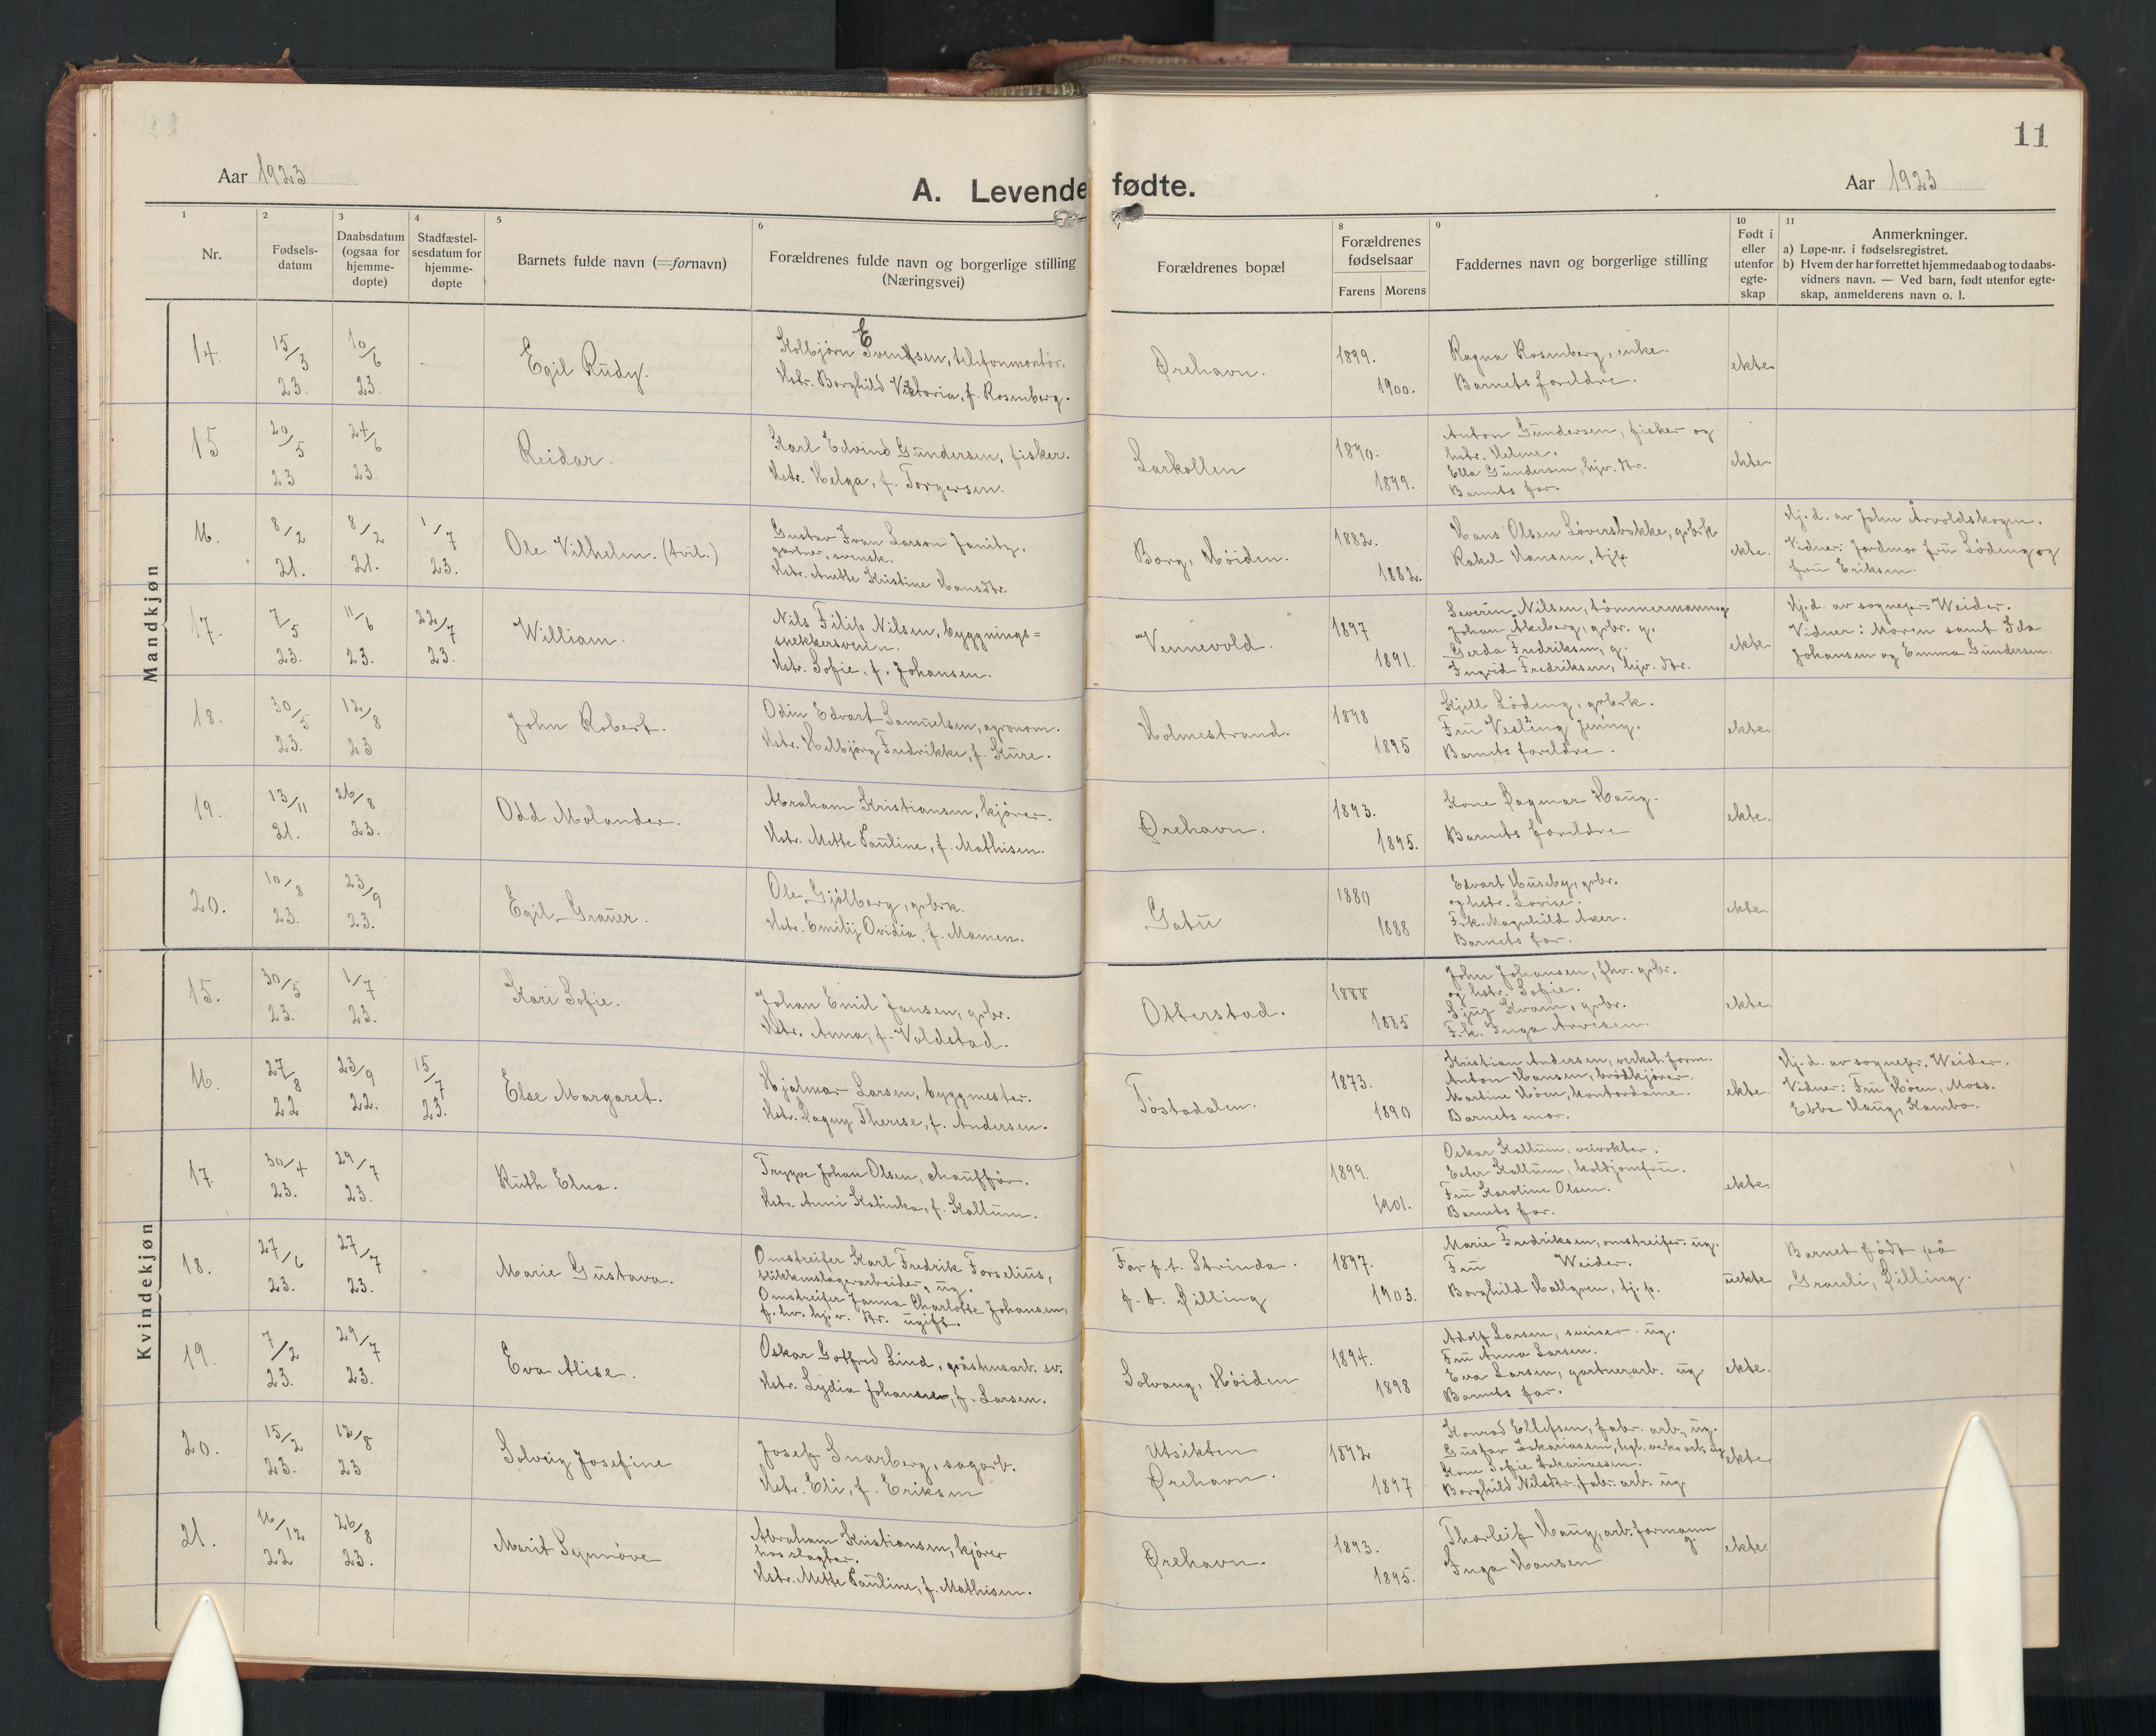 11
Aar 1923
A. Levende fødte.
Aar 1923
1
2
3
4
5
6
8
9
10
11
Nr.
Fødsels-
datum
Daabsdatum
(ogsaa for
hjemme-
døpte)
Stadfæstel-
sesdatum for
hjemme-
døpte
Barnets fulde navn (=fornavn)
Forældrenes fulde navn og borgerlige stilling
(Næringsvei)
Forældrenes bopæl
Forældrenes
fødselsaar
Farens
Morens
Faddernes navn og borgerlige stilling
Født i
eller
utenfor
egte-
skap
Anmerkninger.
a) Løpe-nr. i fødselsregistret.
b) Hvem der har forrettet hjemmedaab og to daabs-
vidners navn. — Ved barn, født utenfor egte-
skap, anmelderens navn o. l.
Mandkjøn
14.
15/3
23.
10/6
23.
Egil Rudy.
Kolbjørn Evensen, telefonmontør.
Hstr. Borghild Viktoria, f. Rosenberg.
Ørehavn.
1899.
1900.
Ragna Rosenberg, enke.
Barnets foreldre.
ekte
15
20/5
23
24/6
23.
Reidar.
Karl Edvind Gundersen, fisker.
Hstr. Helga, f. Torgersen.
Larkollen
1890.
1899.
Anton Gundersen, fisker og
hstr. Helene.
Ella Gundersen, hjv. dtr.
Barnets far.
ekte
16.
8/2
21.
8/2
21.
1/7
23.
Ole Vilhelm. (tvil.)
Gustav Ivan Larson Janitz,
gartner, svensk.
Hstr. Anette Kristine Hansdtr.
Borg, Høiden.
1882.
1882.
Hans Olsen Løversbakke, grbrk.
Rakel Hansen, tjp.
ekte.
Hj.d. av John Årvoldskogen.
Vidner: Jordmor fru Lødeng og
fru Eriksen.
17.
7/5
23.
11/6
23.
22/7
23.
William.
Nils Filip Nilsen, byggnings=
snekkersvein.
Hstr. Sofie, f. Johansen.
Vennevold.
1897
1891.
Severin Nilsen, tømmermann g.
Johan Akeberg, grbr. g.
Gerda Fredriksen, g.
Ingrid Fredriksen, hjv. dtr.
ekte
Hj.d. av sognepr. Weider.
Vidner: Moren samt Ida
Johansen og Emma Gundersen.
18.
30/5
23.
12/8
23
John Robert.
Odin Edvart Samuelsen, agronom.
Hstr. Helbjørg Fredrikke, f. Kure.
Holmestrand.
1898
1895
Kjell Lødeng, grbrk.
Barnets foreldre.
ekte
19.
13/11
21.
26/8
23.
Odd Molander.
Abraham Kristiansen, kjører.
Hstr. Mette Pauline, f. Mathisen.
Ørehavn.
1893.
1895.
Kone Dagmar Haug.
Barnets foreldre
ekte.
20.
10/8
23.
23/9
23.
Egil Graner.
Ole Gjølberg, grbrk.
Hstr. Emilij Ovidia, f. Mamen.
Gatu
1880
1888
Edvart Huseby, grbr.
og hstr. Lovise.
Frk. Magnhild Aker.
Barnets far.
ekte
Kvindekjøn
15.
30/5
23.
1/7
23.
Kari Sofie.
Johan Emil Jansen, grbr.
Hstr. Anna, f. Voldstad.
Otterstad.
1888
1885
John Johansen, fhv. grbr.
og hstr. Sofie.
Sjur Kvam, grbr.
Frk. Inga Arvesen.
ekte.
16.
27/8
22
23/9
22.
15/7
23.
Else Margaret.
Hjalmar Larsen, byggmester.
Hstr. Dagny Therese, f. Andersen.
Tøstadalen.
1873.
1890
Kristian Andersen, verkst. form.
Anton Hansen, brødkjører.
Martine Høen, kontordame.
Barnets mor.
ekte
Hj.d. av sognepr. Weider.
Vidner: Fru Høen, Moss.
Ebba Haug, Kambo.
17.
30/4
23.
29/7
23.
Ruth Elna.
Trygve Johan Olsen, chauffør.
Hstr. Anni Katinka, f. Kallum.
1899.
1901.
Oskar Kallum, veivokter.
Ester Kallum, koldjomfru.
Fru Karoline Olsen.
Barnets far.
ekte
18.
27/6
23.
27/7
23.
Marie Gustava.
Omstreifer Karl Fredrik Forselius,
blikkenslagerarbeider, ug.
Omstreifer Janna Charlotte Johansen,
f. hv. hj. v. dtr. ugift.
Far p.t. Strinda.
f. d. Rilling
1897.
1903.
Marie Fredriksen, omstreifer. ug.
Fru Weider.
Borghild Hallgren, tj. p.
uekte
Barnet født på
Grauli, Rilling.
19.
7/2
23.
29/7
23.
Eva Alise.
Oskar Gotfred Lind, gråstensarb. sv.
Hstr. Lydia Johanne, f. Larsen.
Solvang, Høiden
1894.
1898
Adolf Larsen, sveiser. ug.
Fru Anna Larsen.
Eva Larsen, gartnerarb. ug.
Barnets far.
ekte.
20.
15/2
23.
12/8
23
Solveig Josefine
Josef Snarberg, sagarb.
Hstr. Eli, f. Eriksen
Utsikten
Ørehavn.
1892
1897
Konrad Ellefsen, fabr. arb., ug.
Gustav Sakariassen, tegl. verks arb. ug
Kone Sofie Sakariassen.
Borghild Nilsdtr. fabr. arb. ug.
ekte
21.
16/12
22
26/8
23.
Marit Synnøve
Abraham Kristiansen, kjører
hos slagter.
Hstr. Mette Pauline, f. Mathisen.
Ørehavn.
1893.
1895.
Thorleif Haug, arb. formann
g.
Inga Hansen
ekte.